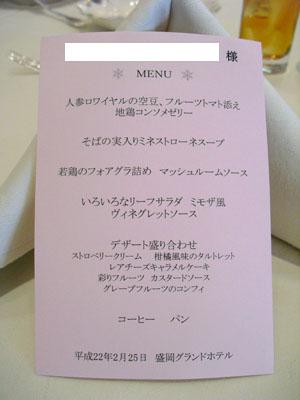 様
MENU
人参ロワイヤルの空豆、フルーツトマト添え
地鶏コンソメゼリー
そばの実入りミネストローネスープ
若鶏のフォアグラ詰め マッシュルームソース
いろいろなリーフサラダ ミモザ風
ヴィネグレットソース
デザート盛り合わせ
ストロベリークリーム 柑橘風味のタルトレット
レアチーズキャラメルケーキ
彩りフルーツ カスタードソース
グレープフルーツのコンフィ
コーヒー パン
平成22年2月25日 盛岡グランドホテル